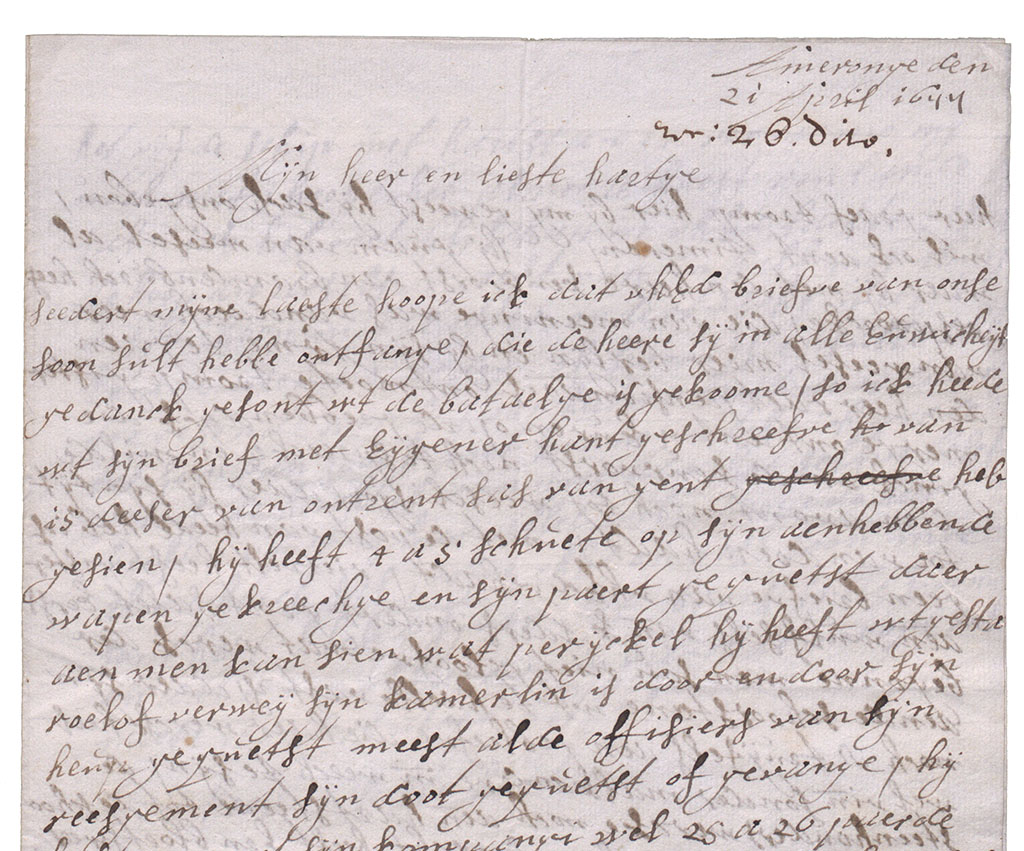 Ameronge den
21 April 1677
rr: 28. dito,
Mijn heer en lieste hartge
seedert mijne laeste hoope ick dat uhEd briefve van onse
soon sult hebbe ontfange, die de heere sij in alle Euwicheijt
gedanck gesont wt de bataelge is gekoome / so ick heede
wt sijn brief met Eijgener hant geschreefve van
is deeser van ontrent sas van gent geschreefve heb
gesien / hij heeft 4 a 5 scheute op sijn aenhebbende
wapen gekreechge en sijn paert gequetst daer
aen men kan sien wat perijckel hij heeft wtgesta
roelof verweij sijn kamerlin is door en door sijn
heup gequetst meest alde offisiers van sijn
reesgement sijn doot gequetst of gevange / hij
sijn wel 25 a 26 paerde